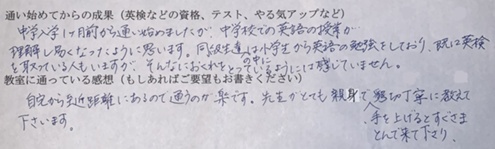 通い始めてからの成果（英検などの資格、テスト、やる気アップなど）
中学入学1ヶ月前から通い始めましたが、中学校での英語の授業が
理解し易くなったように思います。同級生達は小学生から英語の勉強をしており、既に英検
を取っている人もいますが、その中にそんなにおくれをとっているようには感じていません。
教室に通っている感想（もしあればご要望もお書きください）
自宅から至近距離にあるので通うのが楽です。先生がとても親身で、懇切丁寧に教えて
手を上げるとすぐさま
とんで来て下さり、
下さいます。